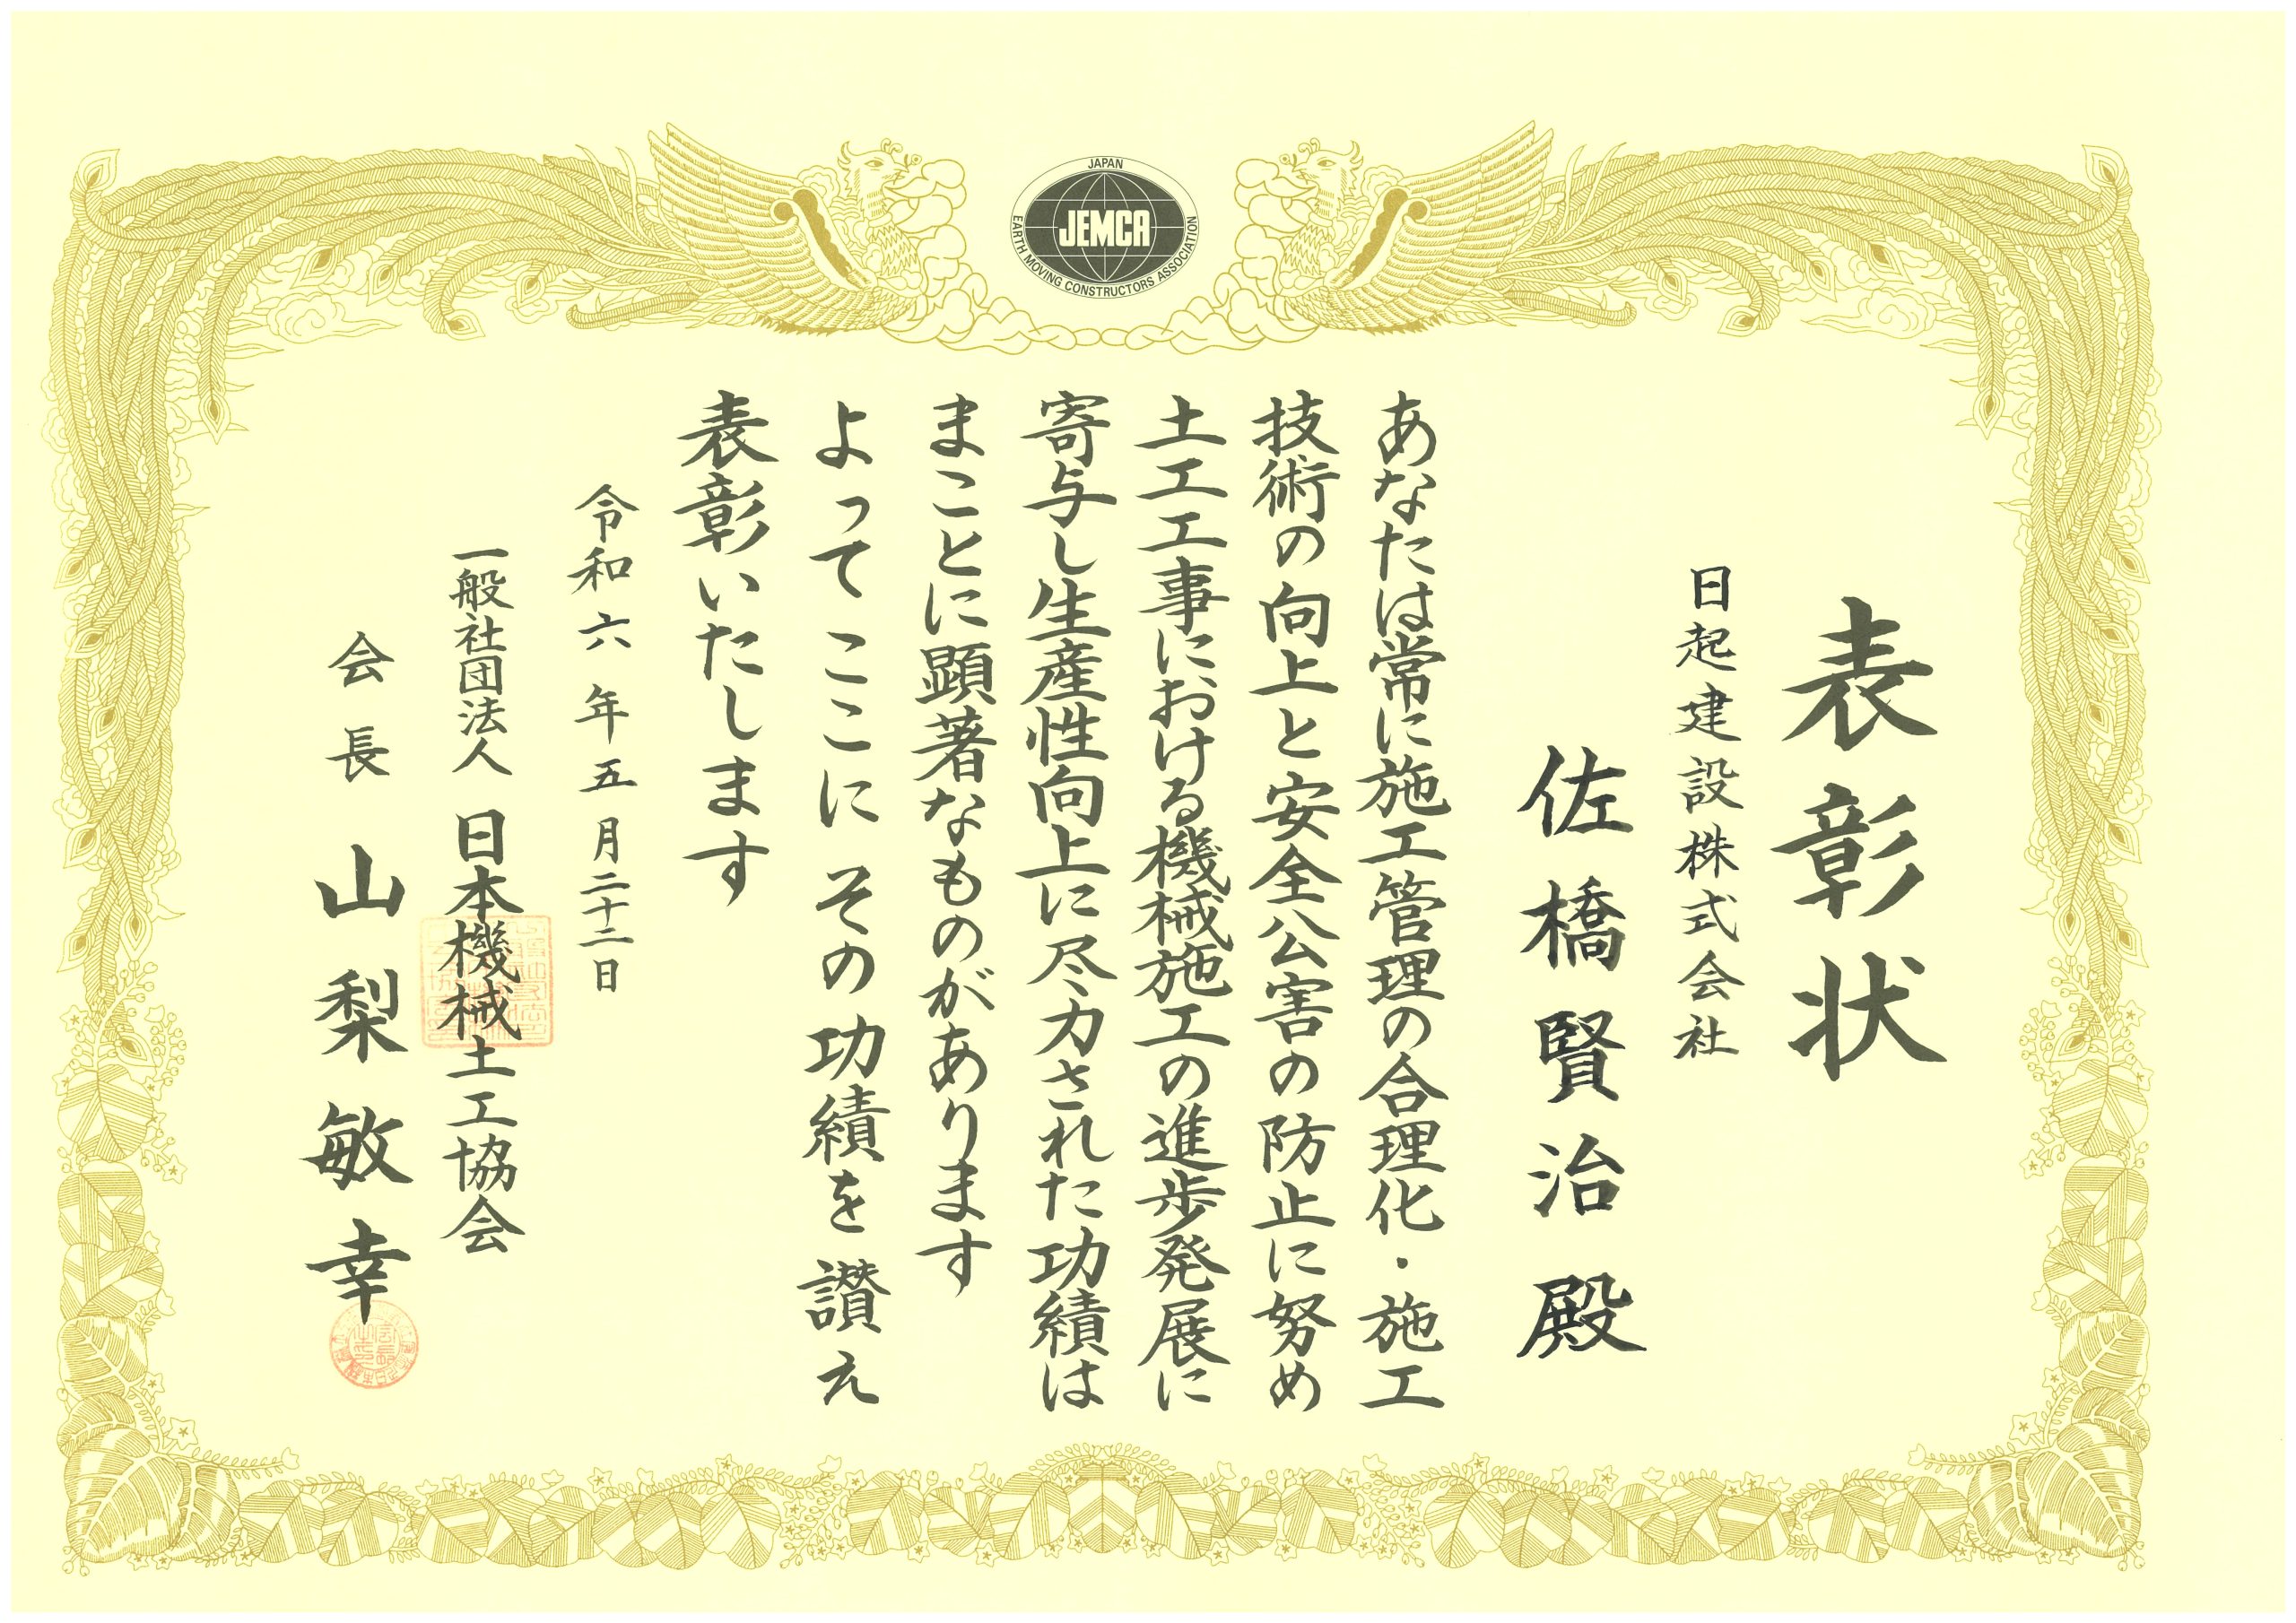 JAPAN
JEMCA
EARTH MOVING CONSTRUCTORS ASSOCIATION
表彰状
日起建設株式会社
佐橋賢治殿
あなたは常に施工管理の合理化・施工
技術の向上と安全公害の防止に努め
土工工事における機械施工の進歩発展に
寄与し生産性向上に尽力された功績は
まことに顕著なものがあります
よってここにその功績を讃え
表彰いたします
令和六年五月二十二日
一般社団法人 日本機械土工協会
会長 山梨敏幸